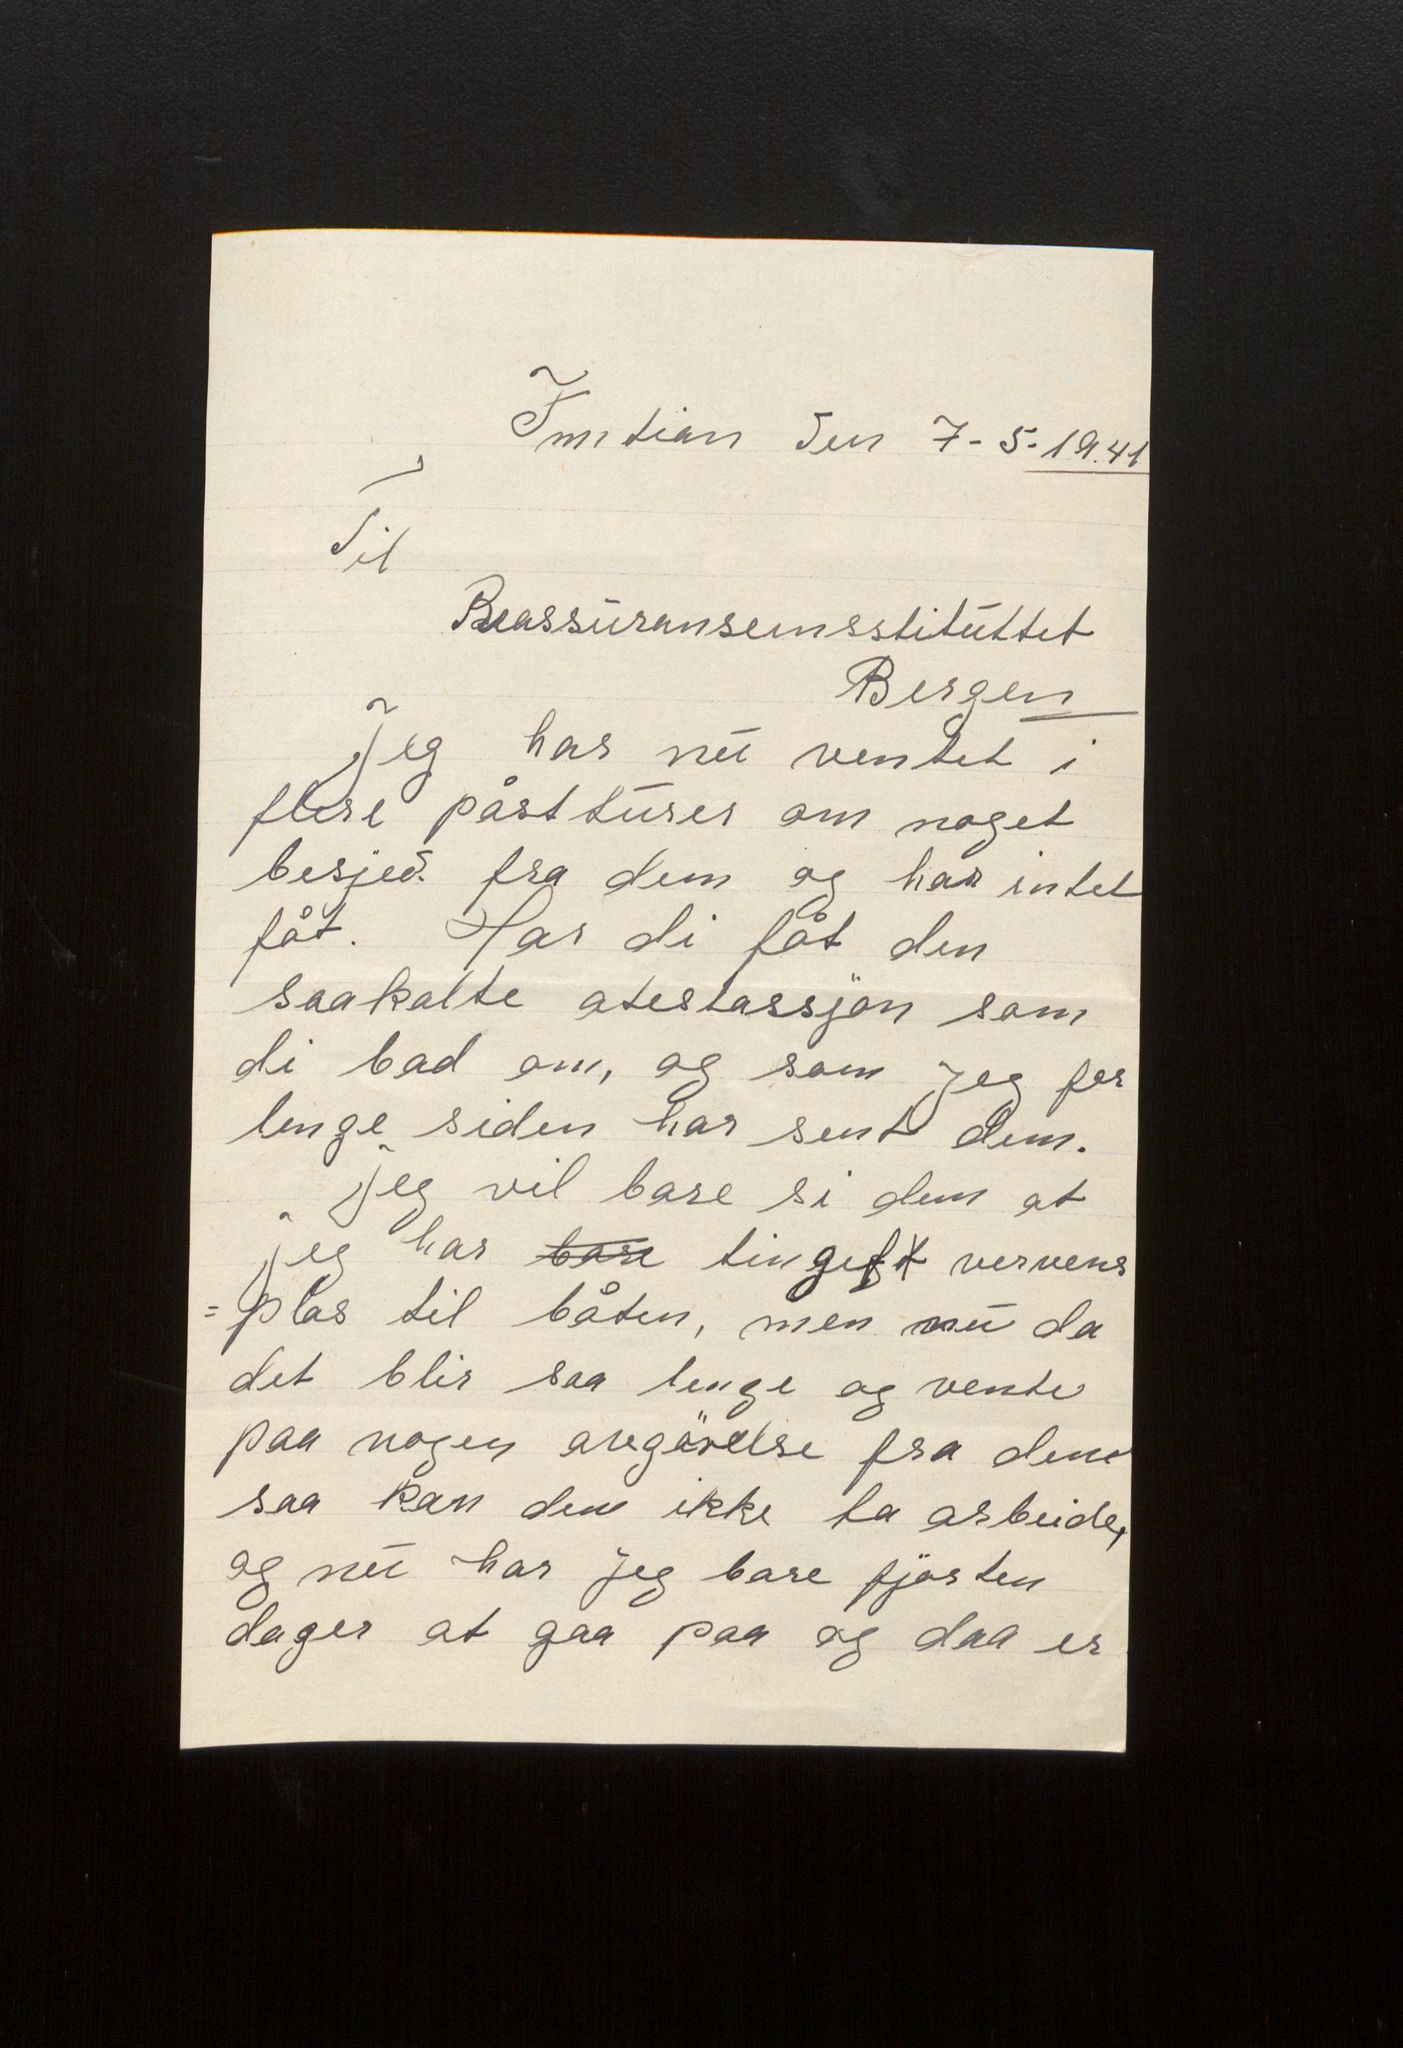 Imtian den 7-5-1941
Til
Reassuranseinsstituttet
Bergen
Jeg har nu ventet i
flere påstturer om noget
besjed. fra dem og har intet
fåt. Har di fåt den
saakalte atestassjon som
di bad om, og som jeg for
lenge siden har sent dem.
Jeg vil bare si dem at
jeg har bare tinget vervens
=plas til båten, men nu da
det blir saa lenge og vente
paa nogen avgörelse fra dem
saa kan dem ikke ta arbeide,
og nu har jeg bare fjorten
dager at gaa paa og daa er